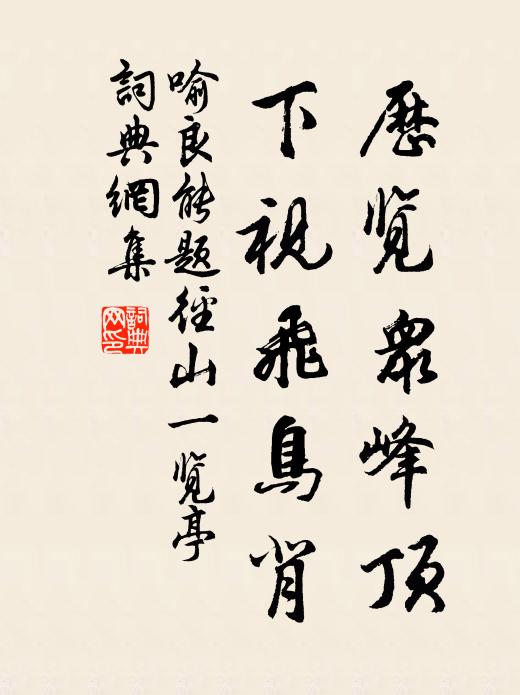 歷覽衆峰頂
下視飛鳥背
喻良能題徑山一覽亭
詞典網集
詞典
网印